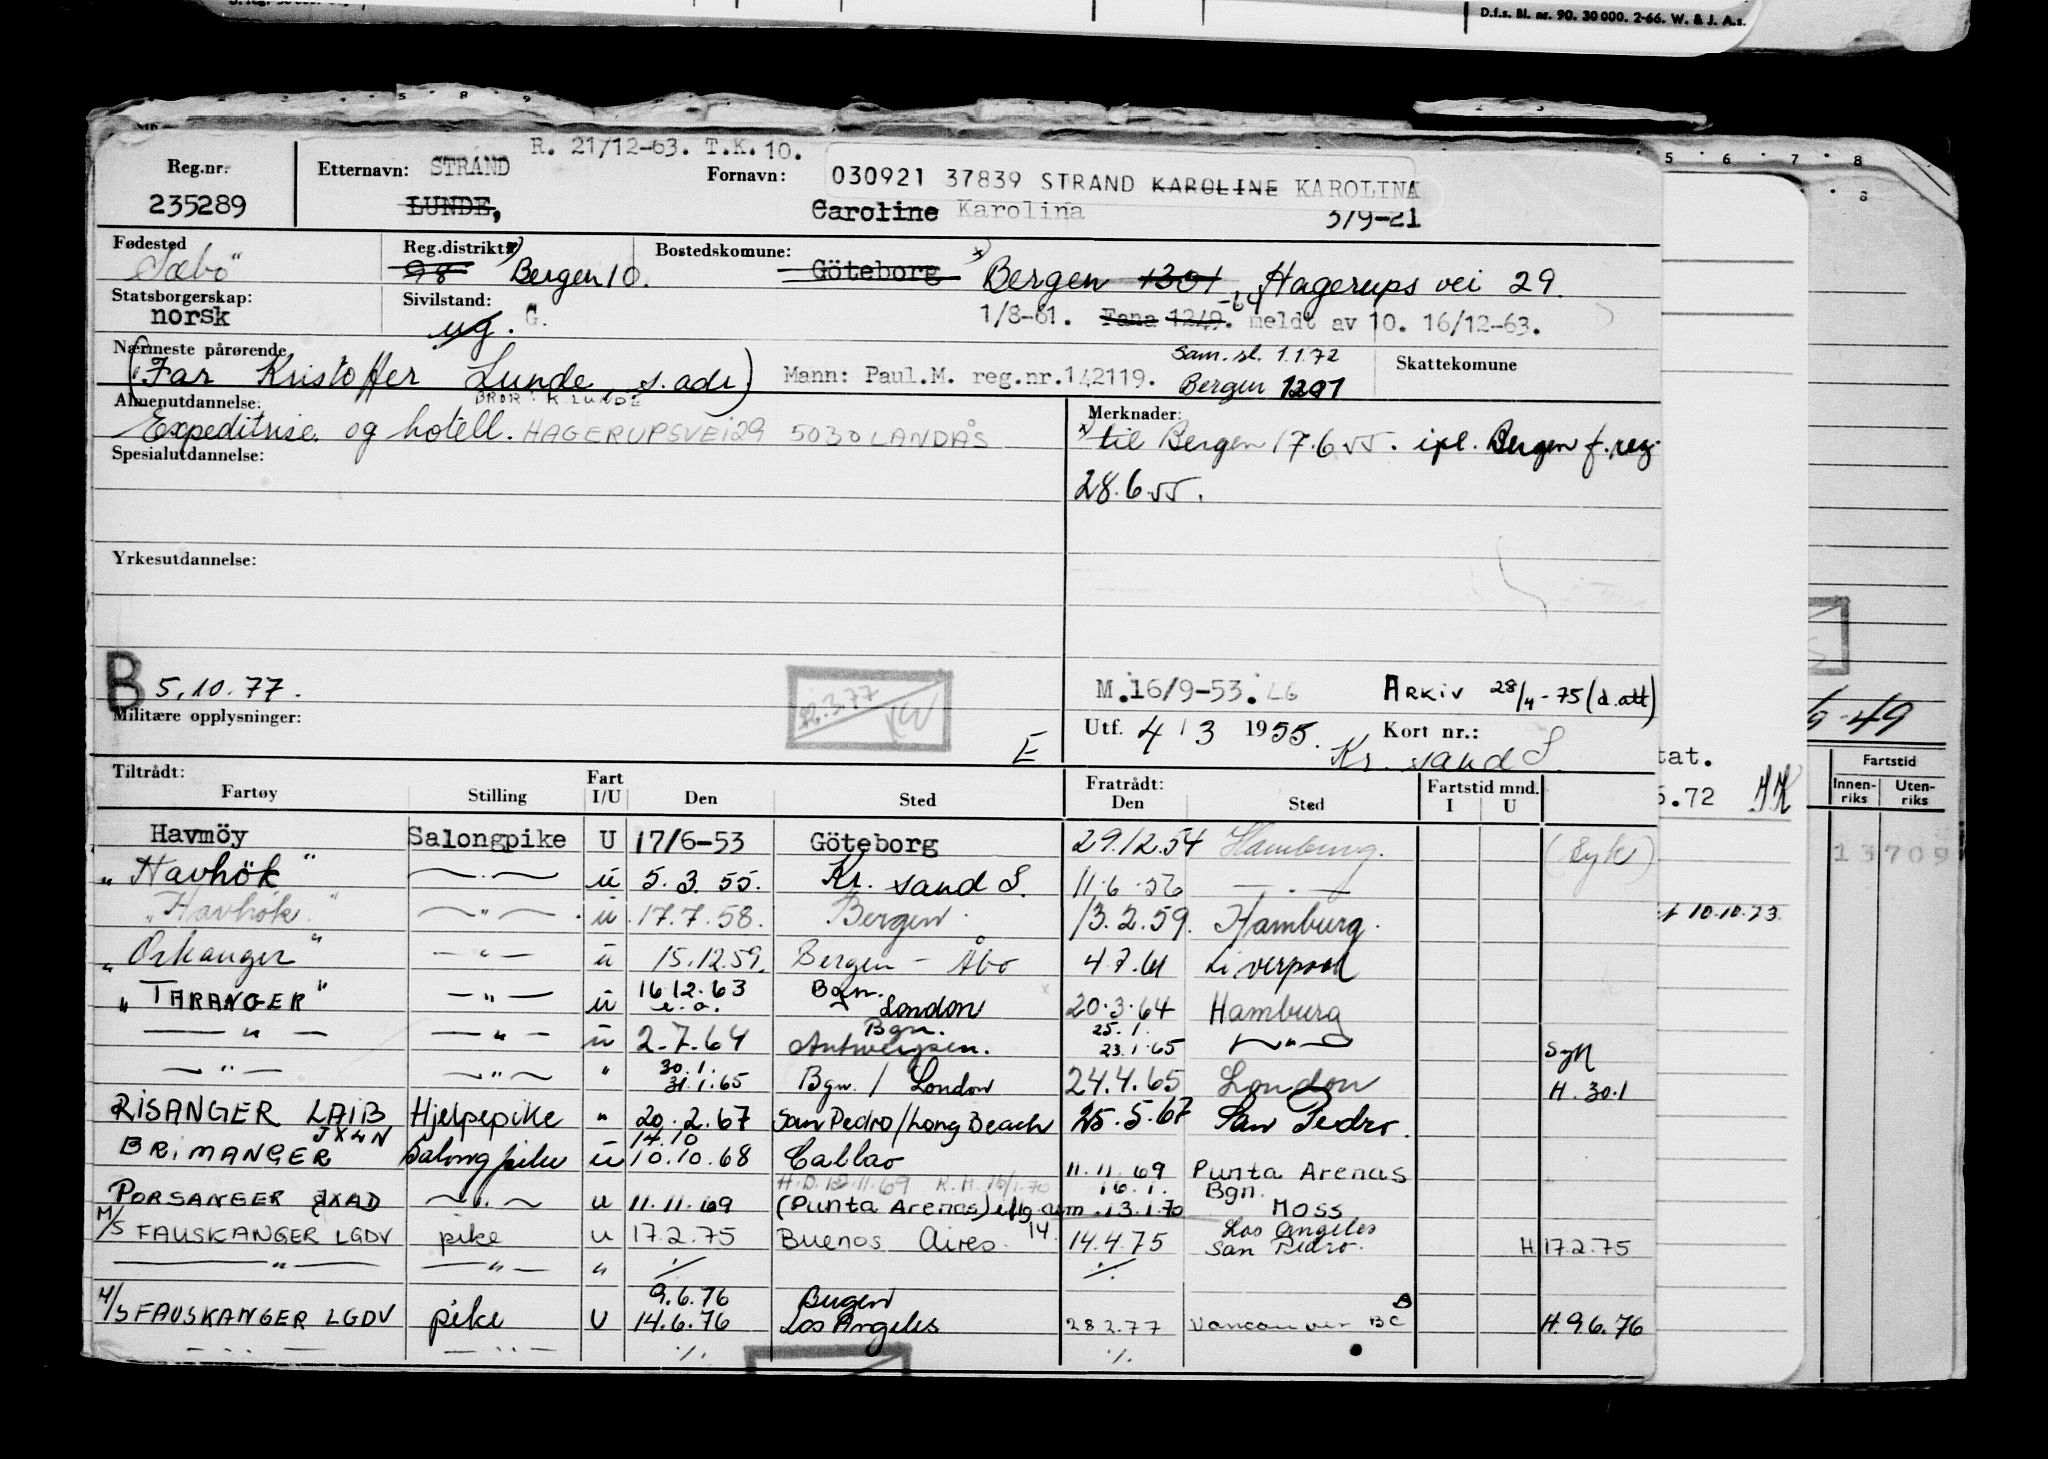 D.f.s. Bl. nr. 90. 30 000. 2-66. W. & J. A.s.
R. 21/12-63. T.K. 10.
Reg.nr. Etternavn: STRAND Fornavn: 030921 37839 STRAND KAROLINE KAROLINA
235289 LUNDE, Caroline Karolina 3/9-21
Fødested Reg.distrikt x) Bostedskomune: x)
"Sæbø" 98 Bergen 10. Göteborg Bergen 1301 Hagerups vei 29.
Statsborgerskap: Sivilstand:
norsk ug. G. 1/8-61. Fana 1249. -64 meldt av 10. 16/12-63.
Nærmeste pårørende Sam. sl. 1.1.72 Skattekomune
(Far Kristoffer Lunde, s. adr) Mann: Paul.M. reg.nr.142119. Bergen 1201
BROR: K. LUNDE
Almenutdannelse: Merknader:
Expeditrise og hotell. HAGERUPSVEI 29 5030 LANDÅS x) til Bergen 17.6.55. ipl. Bergen f. reg.
Spesialutdannelse:
28.6.55.
Yrkesutdannelse:
B 5.10.77. M.16/9-53. LG ARKIV 28/4-75 (d.att)
Militære opplysninger: Utf. 4/3 1955. Kort nr.:
E Kr. sand S.
Tiltrådt: Fart Fratrådt: Fartstid mnd.
Fartøy Stilling I/U Den Sted Den Sted I U
Havmöy Salongpike U 17/6-53 Göteborg 29.12.54 Hamburg. (Syk)
"Havhök" —"— u 5.3.55. Kr. sand S. 11.6.56 —"—
"Havhök" —"— u 17.7.58. Bergen 13.2.59. Hamburg.
"Orkanger" —"— u 15.12.59. Bergen - Åbo 4.7.61 Liverpool
"TARANGER" —"— u 16.12.63 e.o. Bgn. - London 20.3.64 Hamburg
—"— —"— u 2.7.64 Bgn. Antwerpen. 25.1. 23.1.65 —"— Syk
—"— —"— " 30.1. 31.1.65 Bgn. / London 24.4.65 London H. 30.1
RISANGER LAIB Hjelpepike " 20.2.67 San Pedro/Long Beach 25.5.67 San Pedro.
BRIMANGER JXLN Salongpike u 14.10 10.10.68 Callao 11.11.69 Punta Arenas
H.D. 12.11.69 R.H. 16/1.70 16.1. Bgn.
PORSANGER JXAD —"— u 11.11.69 (Punta Arenas) 13.1.70 MOSS
M/S FAUSKANGER LGDV pike u 17.2.75 Buenos Aires 14. 14.4.75 Los Angeles San Pedro. H 17.2.75
—"— —"— " ./. ./.
M/S FAUSKANGER LGDV pike U 9.6.76 14.6.76 Bergen Los Angeles 28.2.77 Vancouver BC H. 9.6.76
—"— —"— ./. ./.
5 6 7 8
8
-49
tat. Fartstid
5.72 Innen-riks Uten-riks
13709
10.10.73.